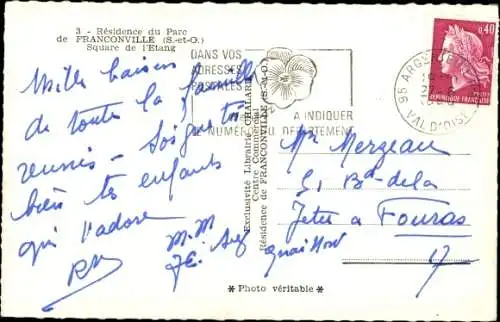 3 - Résidence du Parc
de FRANCONVILLE (S.-et-O.)
Square de l'Etang
DANS VOS
ADRESSES
POSTALES
A INDIQUER
LE NUMÉRO DU DÉPARTEMENT
95 ARGEN
VAL D'OISE
0,40
REPUBLIQUE FRANÇAISE
Mille baisers
de toute la famille
réunis - Soigne toi
bien tes enfants
qui t'adore
Exclusivité Librairie CHALARD
Centre Commercial
Résidence de FRANCONVILLE (S.-et-O.)
Mr Mergeau
51 Bd de la
Jetée à Fouras
17
* Photo véritable *